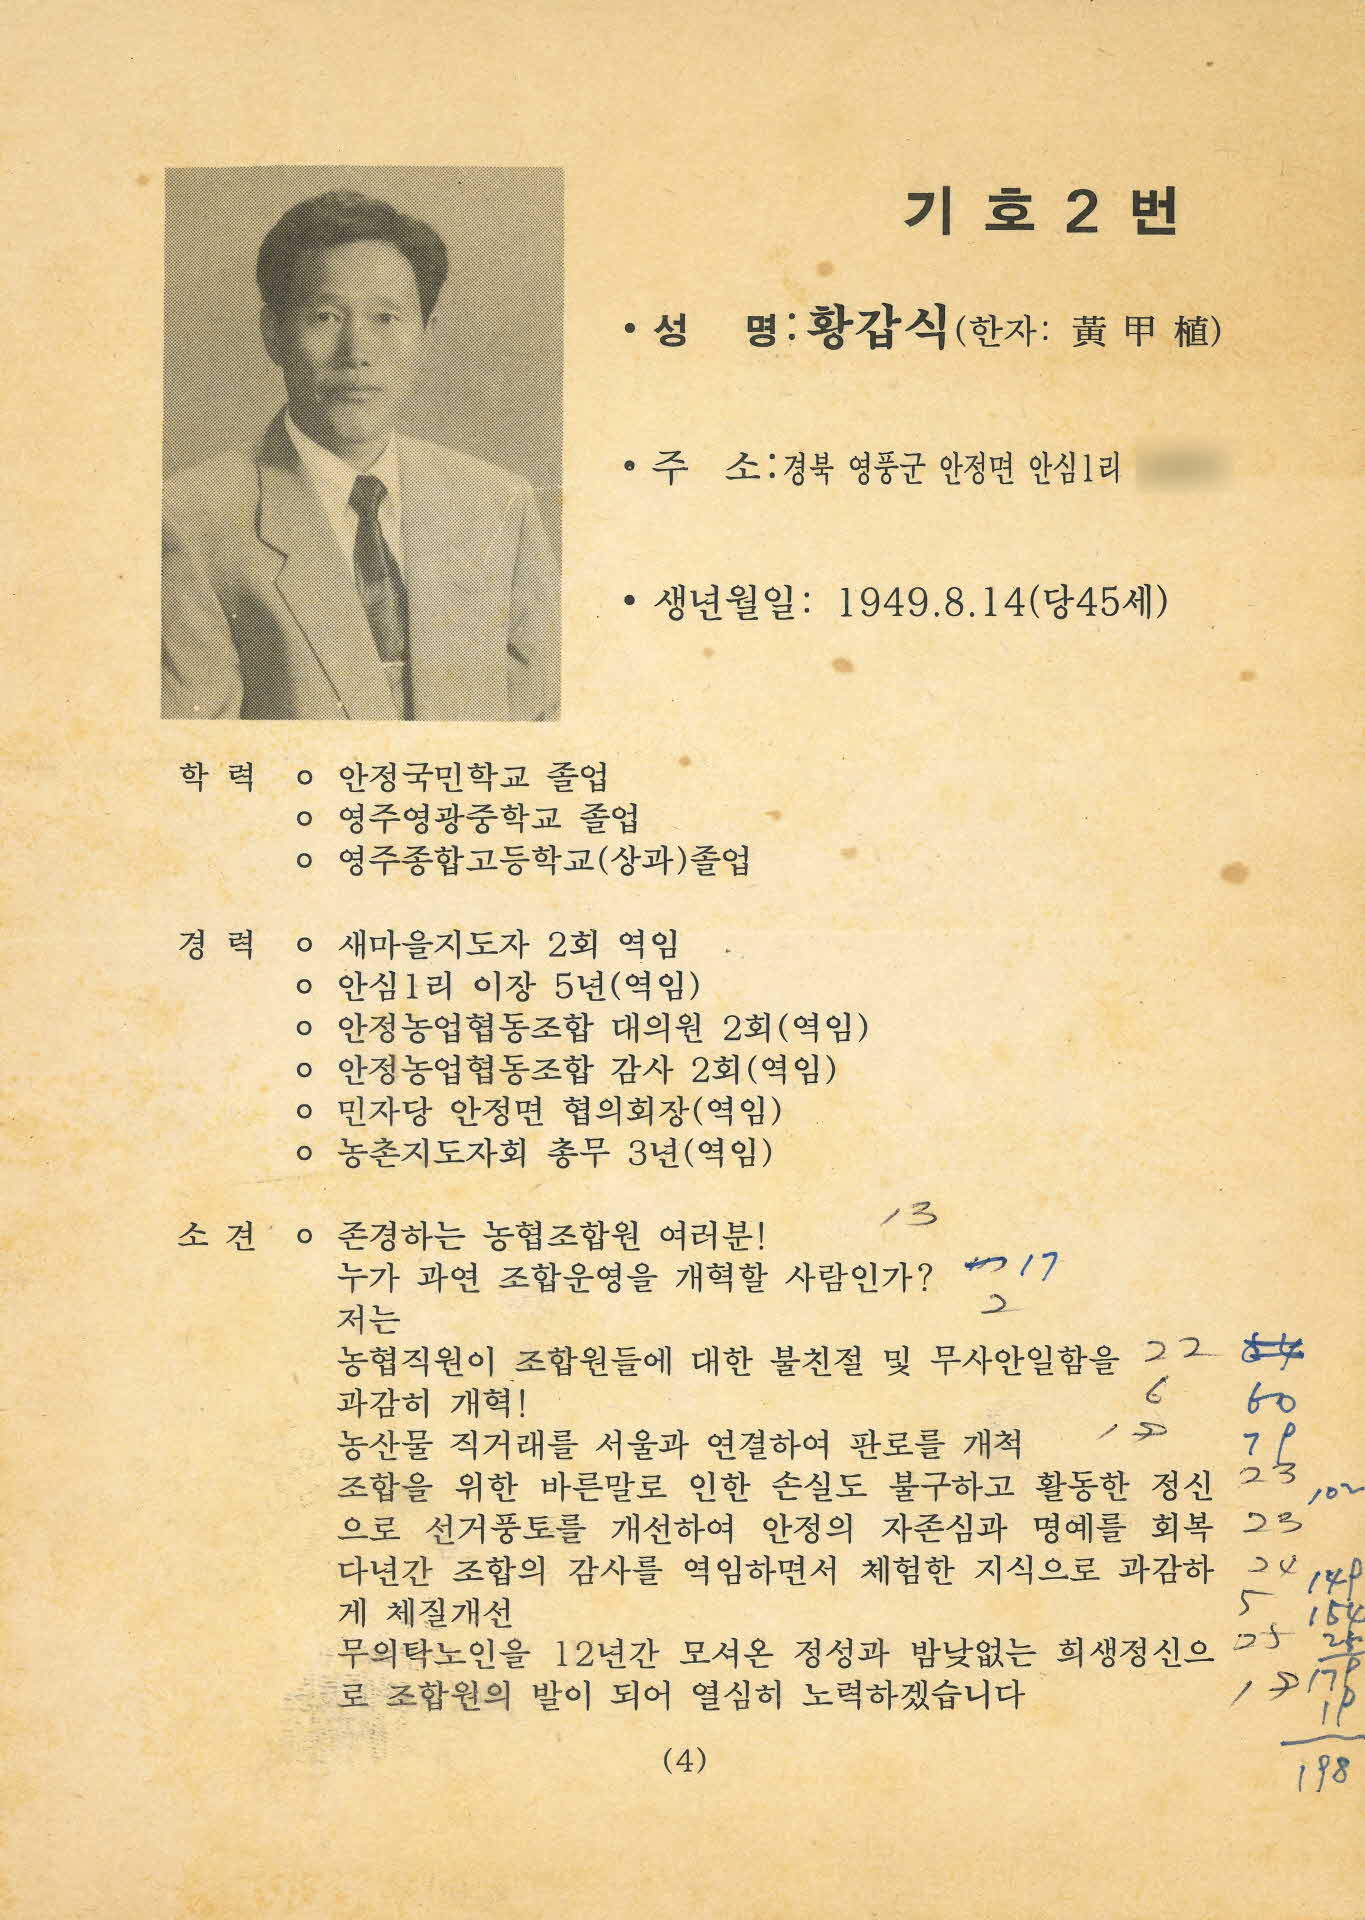 기 호 2 번
• 성 명: 황갑식 (한자: 黃 甲 植)
• 주 소: 경북 영풍군 안정면 안심1리
• 생년월일: 1949.8.14(당45세)
학 력 ○ 안정국민학교 졸업
○ 영주영광중학교 졸업
○ 영주종합고등학교(상과)졸업
경 력 ○ 새마을지도자 2회 역임
○ 안심1리 이장 5년(역임)
○ 안정농업협동조합 대의원 2회(역임)
○ 안정농업협동조합 감사 2회(역임)
○ 민자당 안정면 협의회장(역임)
○ 농촌지도자회 총무 3년(역임)
소 견 ○ 존경하는 농협조합원 여러분! 13
누가 과연 조합운영을 개혁할 사람인가? 17
저는 2
농협직원이 조합원들에 대한 불친절 및 무사안일함을 22 64
과감히 개혁! 6 60
농산물 직거래를 서울과 연결하여 판로를 개척 19 79
조합을 위한 바른말로 인한 손실도 불구하고 활동한 정신 23 102
으로 선거풍토를 개선하여 안정의 자존심과 명예를 회복 23
다년간 조합의 감사를 역임하면서 체험한 지식으로 과감하 24 149
게 체질개선 5 154
무의탁노인을 12년간 모셔온 정성과 밤낮없는 희생정신으 25 25
로 조합원의 발이 되어 열심히 노력하겠습니다 19 179
19
(4) 198